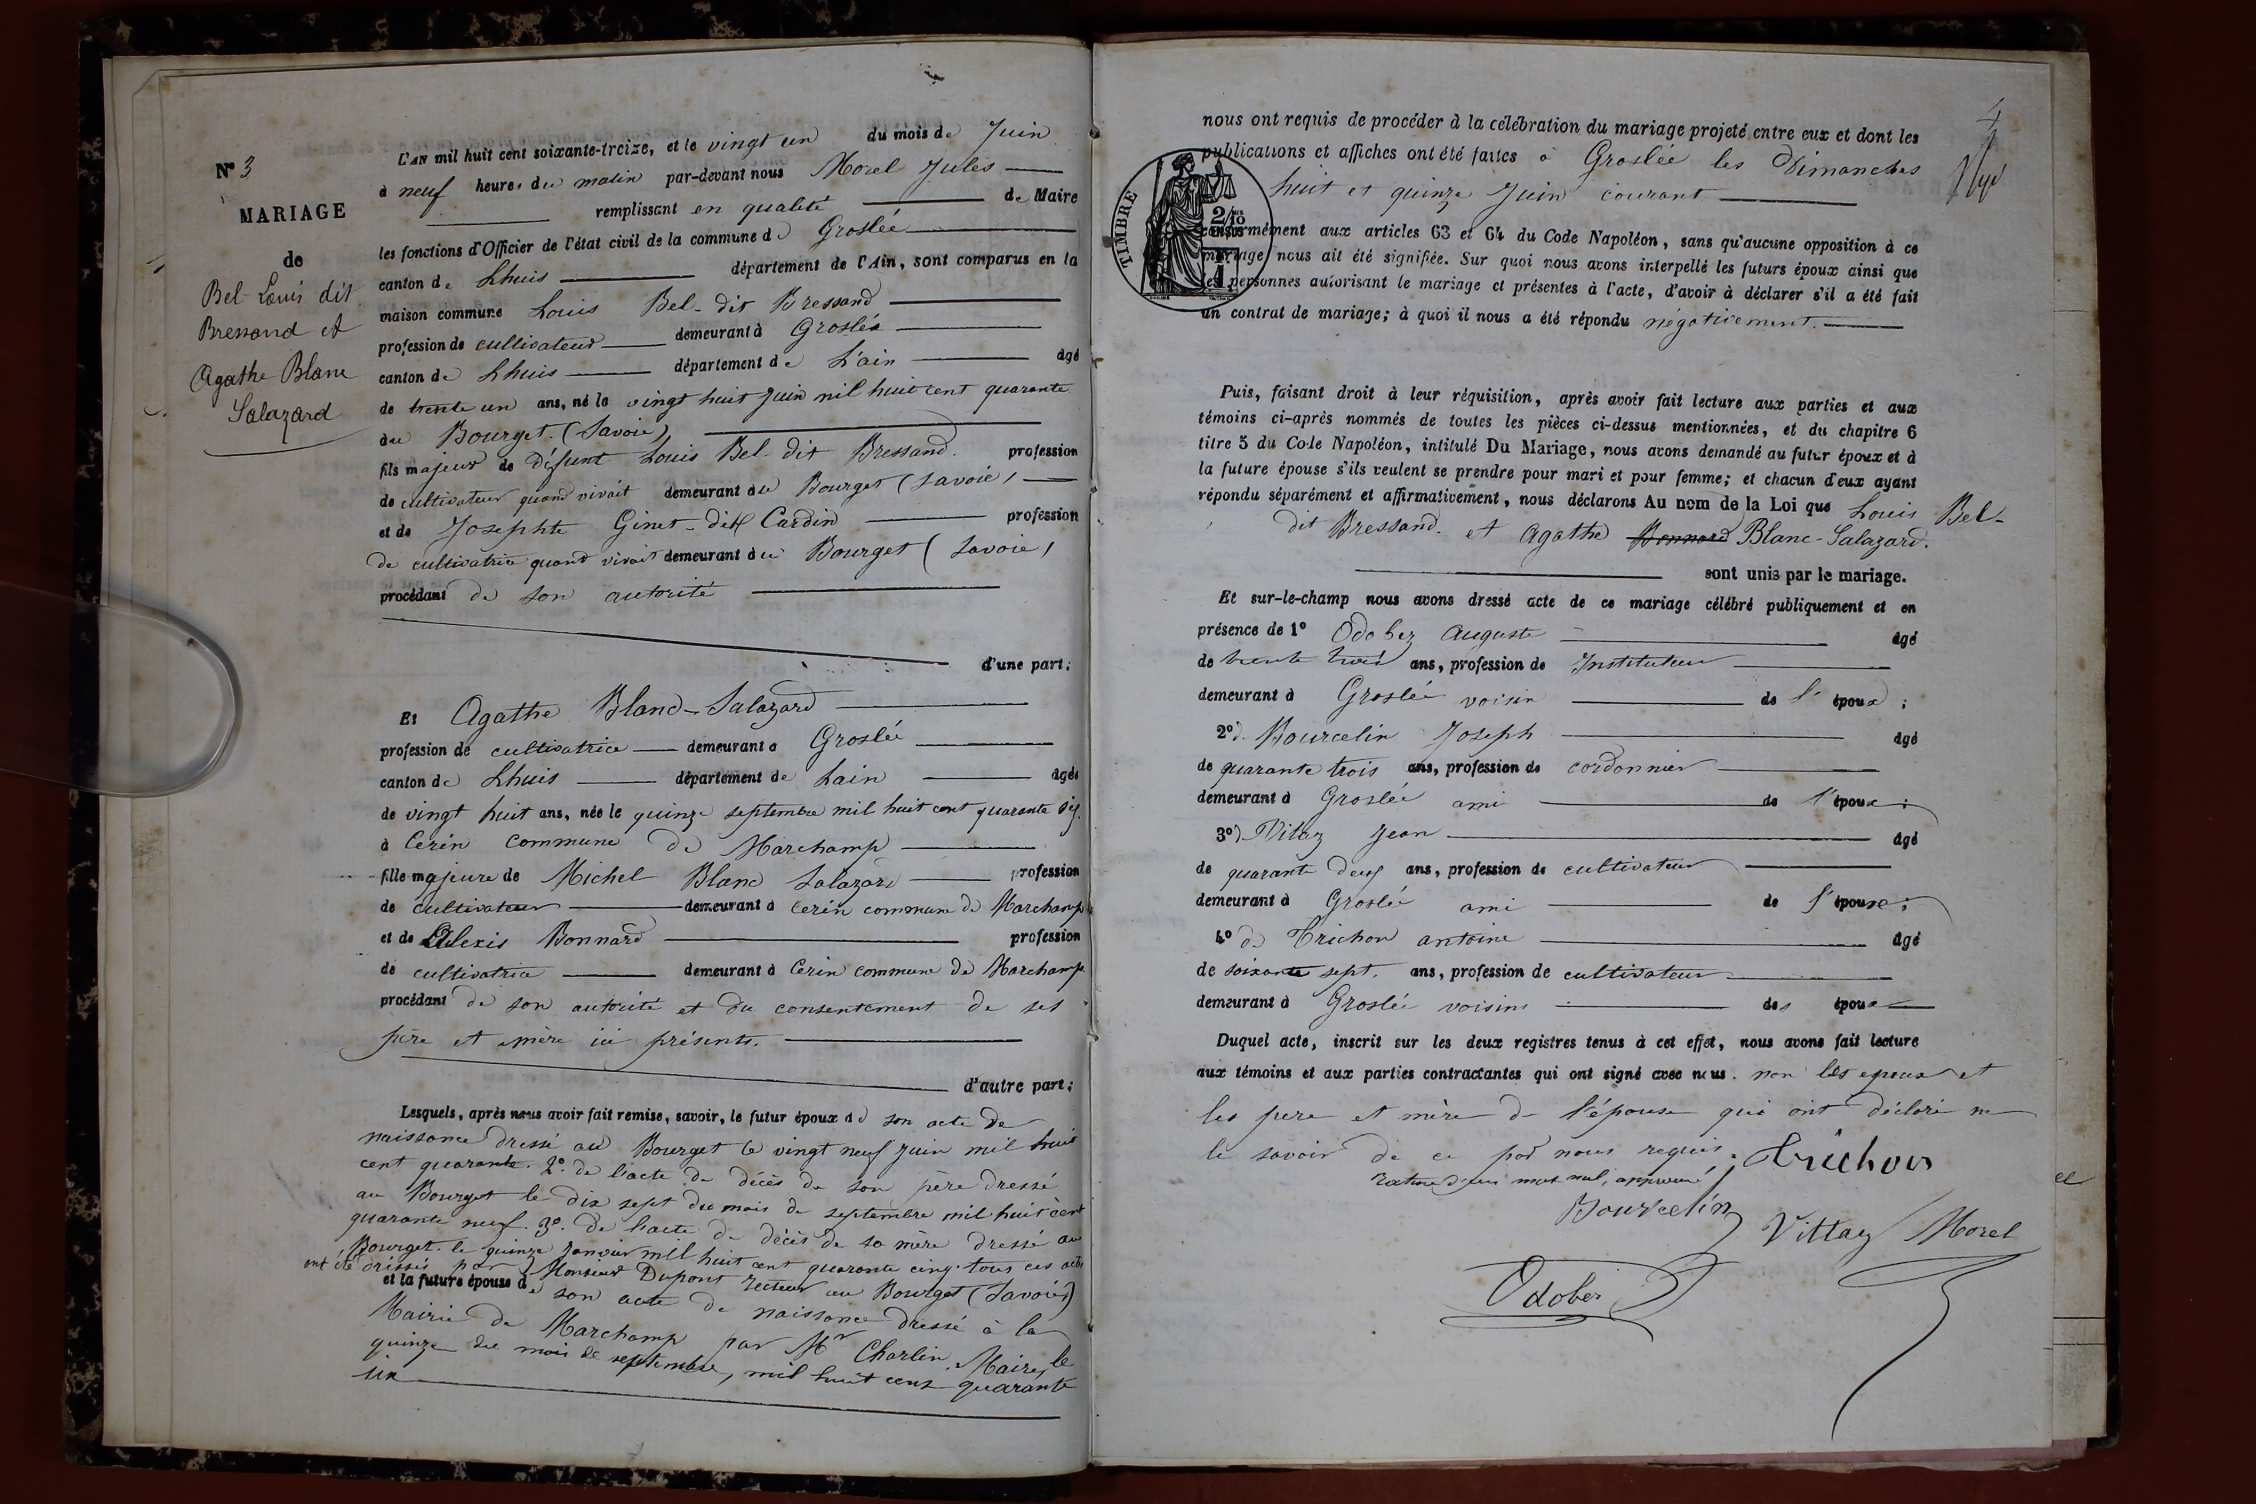 N° 3
MARIAGE
de
Bel Louis dit
Bressand et
Agathe Blanc
Salazard
L'AN mil huit cent soixante-treize, et le vingt un du mois de Juin
à neuf heures du matin par-devant nous Morel Jules
remplissant en qualité de Maire
les fonctions d'Officier de l'état civil de la commune de Groslée
canton de Lhuis département de l'Ain, sont comparus en la
maison commune Louis Bel-dit Bressand
profession de cultivateur demeurant à Groslée
canton de Lhuis département de L'ain âgé
de trente un ans, né le vingt huit Juin mil huit cent quarante
au Bourget (Savoie)
fils majeur de défunt Louis Bel-dit Bressand. profession
de cultivateur quand vivait demeurant au Bourget (Savoie)
et de Josephte Ginet-dit Cardin profession
de cultivatrice quand vivait demeurant au Bourget (Savoie)
procédant de son autorité
d'une part;
Et Agathe Blanc-Salazard
profession de cultivatrice demeurant à Groslée
canton de Lhuis département de Lain âgée
de vingt huit ans, née le quinze septembre mil huit cent quarante six.
à Cerin commune de Marchamp
fille majeure de Michel Blanc Salazard profession
de cultivateur demeurant à Cerin commune de Marchamp
et de Alexis Bonnard profession
de cultivatrice demeurant à Cerin commune de Marchamp.
procédant de son autorité et du consentement de ses
père et mère ici présents.
d'autre part;
Lesquels, après nous avoir fait remise, savoir, le futur époux de son acte de
naissance dressé au Bourget le vingt neuf Juin mil huit
cent quarante. 2° de l'acte de décès de son père dressé
au Bourget le dix sept du mois de septembre mil huit cent
quarante neuf. 3° de l'acte de décès de sa mère dressé au
Bourget le quinze Janvier mil huit cent quarante cinq. tous ces actes
ont été dressés par Monsieur Dupont recteur au Bourget (Savoie)
et la future épouse de son acte de naissance dressé à la
Mairie de Marchamp par Mr Charlin Maire, le
quinze du mois de septembre, mil huit cent quarante
six
nous ont requis de procéder à la célébration du mariage projeté entre eux et dont les
publications et affiches ont été faites à Groslée les Dimanches
huit et quinze Juin courant
TIMBRE
2/10
conformément aux articles 63 et 64 du Code Napoléon, sans qu'aucune opposition à ce
mariage nous ait été signifiée. Sur quoi nous avons interpellé les futurs époux ainsi que
les personnes autorisant le mariage et présentes à l'acte, d'avoir à déclarer s'il a été fait
un contrat de mariage; à quoi il nous a été répondu négativement.
Puis, faisant droit à leur réquisition, après avoir fait lecture aux parties et aux
témoins ci-après nommés de toutes les pièces ci-dessus mentionnées, et du chapitre 6
titre 5 du Code Napoléon, intitulé Du Mariage, nous avons demandé au futur époux et à
la future épouse s'ils veulent se prendre pour mari et pour femme; et chacun d'eux ayant
répondu séparément et affirmativement, nous déclarons Au nom de la Loi que Louis Bel-
dit Bressand. et Agathe Bonnard Blanc-Salazard.
sont unis par le mariage.
Et sur-le-champ nous avons dressé acte de ce mariage célébré publiquement et en
présence de 1° Odobez Auguste âgé
de trente trois ans, profession de Instituteur
demeurant à Groslée voisin de l'époux;
2° d. Bourcelin Joseph âgé
de quarante trois ans, profession de cordonnier
demeurant à Groslée ami de l'époux;
3° d. Vitoz Jean âgé
de quarante deux ans, profession de cultivateur
demeurant à Groslée ami de l'épouse;
4° de Trichon antoine âgé
de soixante sept. ans, profession de cultivateur
demeurant à Groslée voisins des époux
Duquel acte, inscrit sur les deux registres tenus à cet effet, nous avons fait lecture
aux témoins et aux parties contractantes qui ont signé avec nous. non les epoux et
les père et mère de l'épouse qui ont déclaré ne
le savoir de ce par nous requis. Trichon
rature d'un mot nul, approuvé
Bourcelin
Vittoz Morel
Odobez